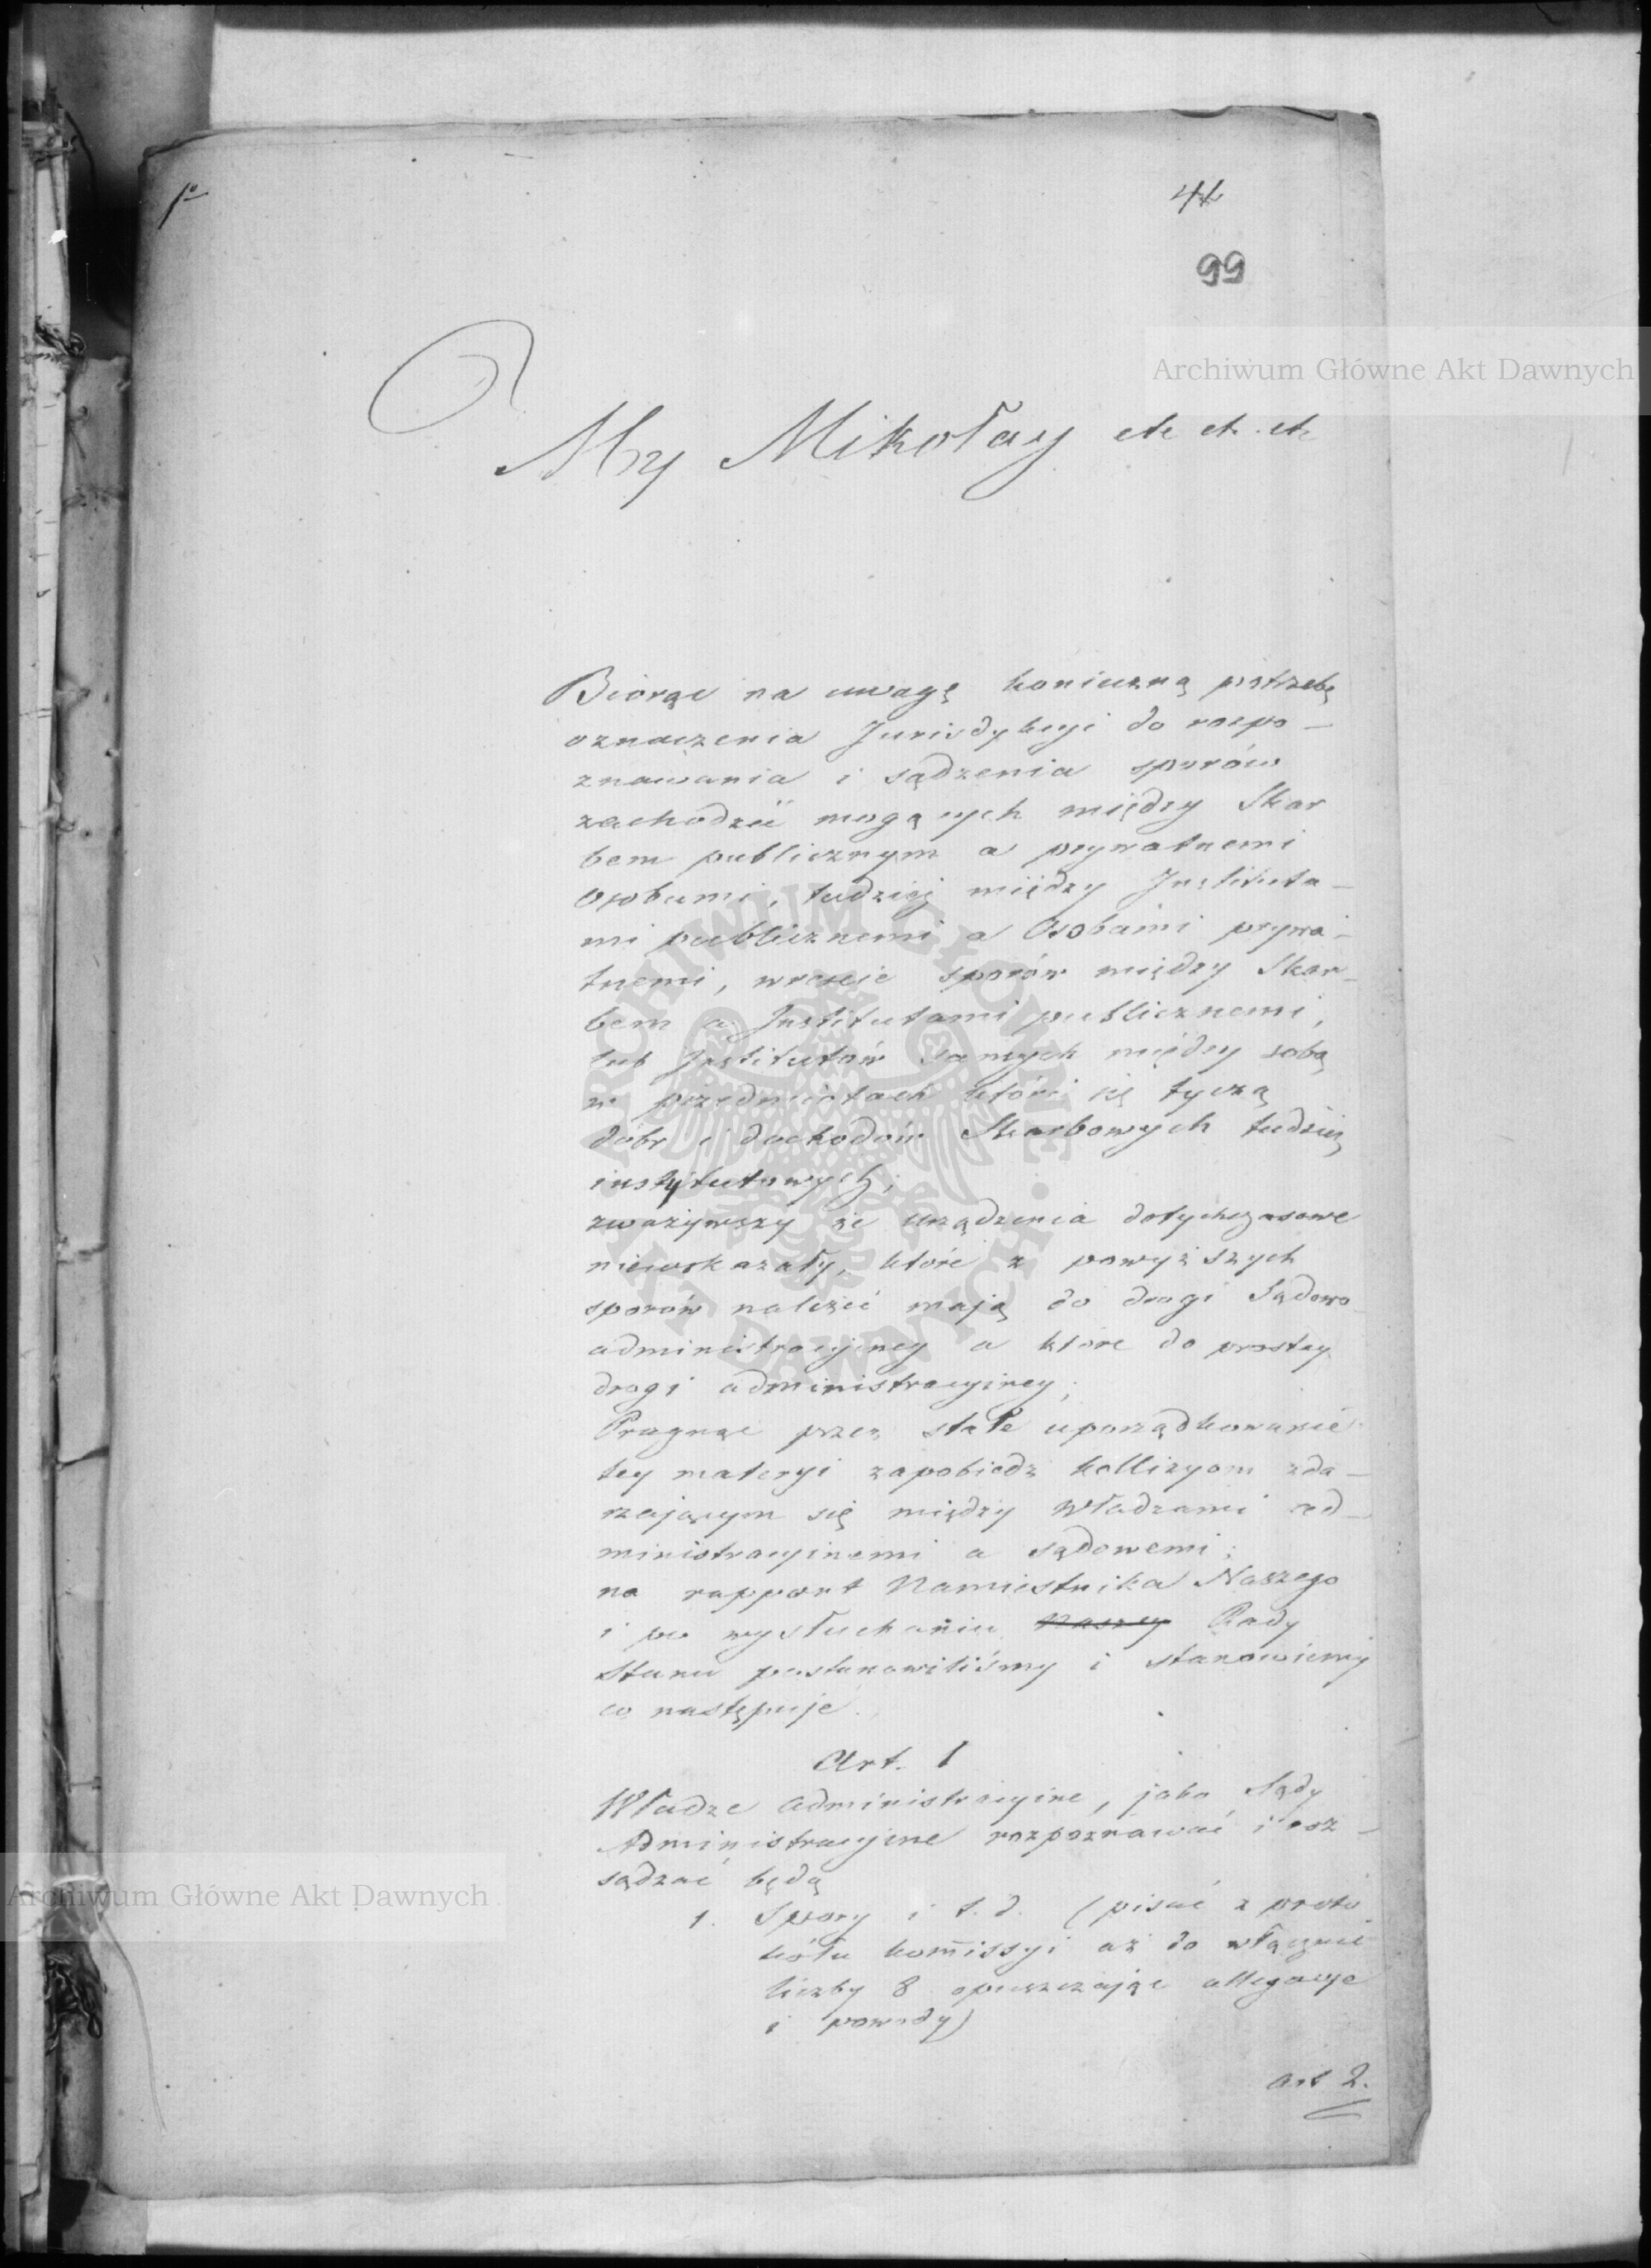 1º
44
99
Archiwum Główne Akt Dawnych
My Mikołay etc etc. etc
Biorąc na uwagę konieczną potrzebę
oznaczenia Jurisdykcyi do rozpo-
znawania i sądzenia sporów
zachodzić mogących między Skar
bem publicznym a prywatnemi
Osobami, tudzież między Instituta-
mi publicznemi a Osobami prywa-
tnemi, wreszcie sporów między Skar-
bem a Institutami publicznemi,
lub Institutów samych między sobą
w przedmiotach które się tyczą
dóbr i dochodów Skarbowych tudzież
instytutowych;
zważywszy że urządzenia dotychczasowe
niewskazały, które z powyższych
sporów należeć mają do drogi Sądowo-
administracyiney a które do prostey
drogi administracyiney;
Pragnąc przez stałe uporządkowanie
tey materyi zapobiedz kollizyom zda-
rzającym się między Władzami ad-
ministracyinemi a sądowemi;
na rapport Namiestnika Naszego
i po wysłuchaniu Naszey Rady
Stanu postanowiliśmy i stanowiemy
co następuje.
Art. I
Władze administracyine, jako Sądy
Administracyine rozpoznawać i osz-
sądzać będą
1. Spory i t. d. (pisać z proto
kółu komissyi aż do włącznie
liczby 8 opuszczając allegacye
i powody)
art 2.
Archiwum Główne Akt Dawnych
ARCHIWUM GŁÓWNE AKT DAWNYCH